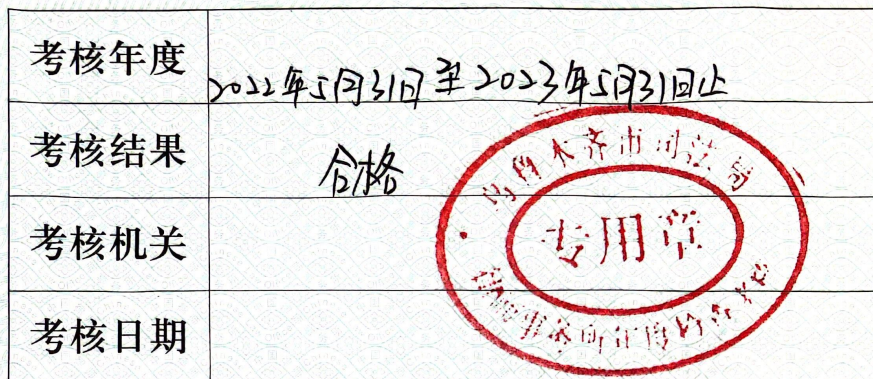 考核年度
2022年5月31日至2023年5月31日止
考核结果
合格
考核机关
考核日期
乌鲁木齐市司法局
专用章
律师事务所年度检查考核